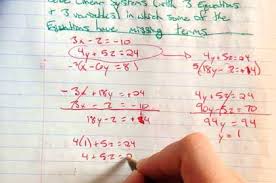 Solve Linear Systems (with 3 Equations
+ 3 variables) in which some of the
Equations have missing terms
3x - z = -10
4y + 5z = 24
-3(x - 6y = 8)
4y + 5z = 24
5(18y - z = +14)
-3x + 18y = +24
3x - z = -10
18y - z = +14
4y + 5z = 24
90y - 5z = 70
94y = 94
y = 1
4(1) + 5z = 24
4 + 5z = 2